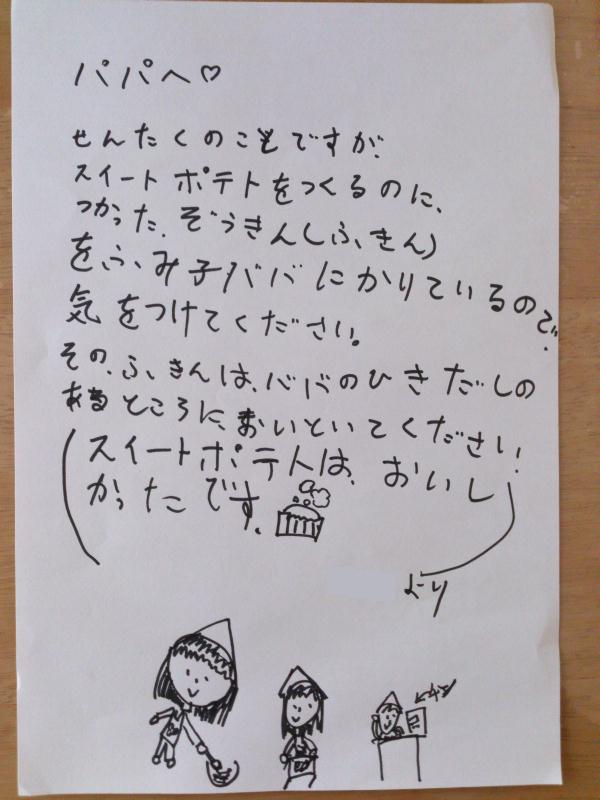 パパへ♡
せんたくのことですが、
スイートポテトをつくるのに、
つかった、ぞうきん(ふきん)
をふみ子ババにかりているので、
気をつけてください。
その、ふきんは、ババのひきだしの
あるところに、おいといてください!
(スイートポテトは、おいし
かったです。)
より